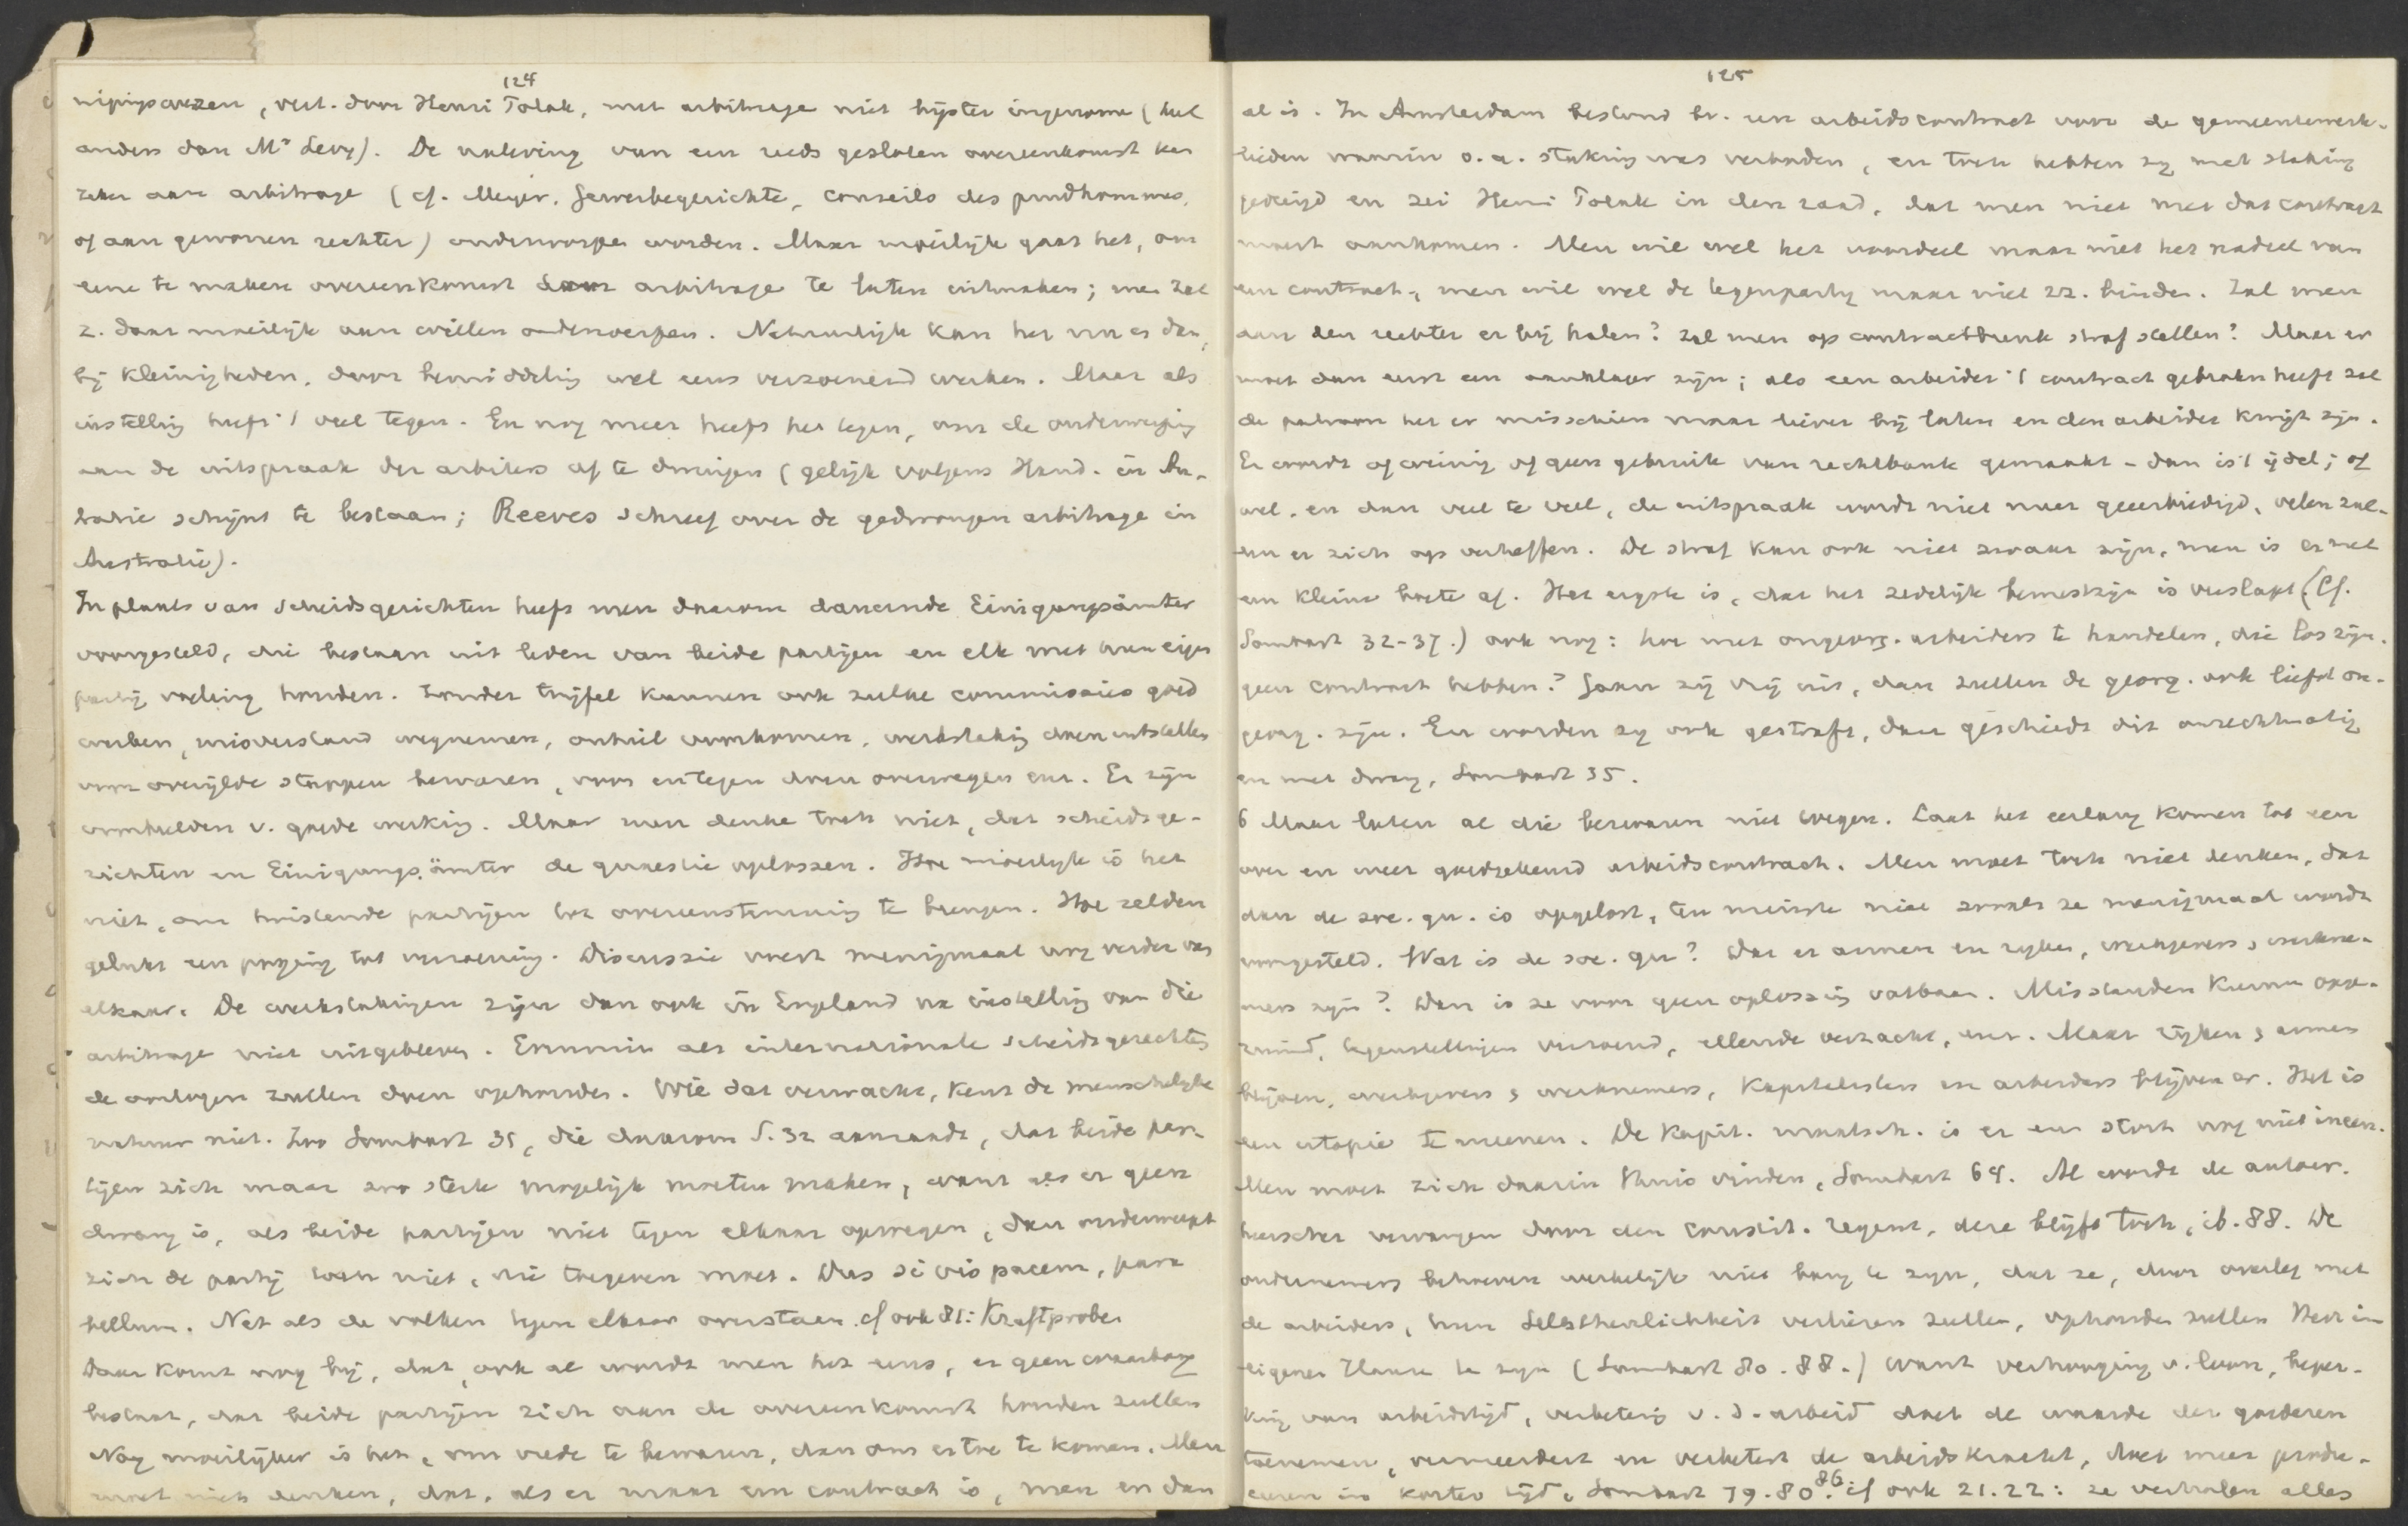 124
nigingswezen, vert. door Henri Polak, met arbitrage niet bijster ingenome (heel
anders dan Mr Levy). De naleving van een reeds gesloten overeenkomst kan
zeker aan arbitrage (cf. Meyer. Gewerbegerichte, conseils des prudhommes,
of aan gewonen rechter) onderworpen worden. Maar moeilijk gaat het, om
eene te maken overeenkomst door arbitrage te laten uitmaken; men zal
z. daar moeilijk aan willen onderwerpen. Natuurlijk kan het nu en dan,
bij kleinigheden, door bemiddeling wel eens verzoenend werken. Maar als
instelling heeft 't veel tegen. En nog meer heeft het tegen, om de onderwerping
aan de uitspraak der arbiters af te dwingen (gelijk volgens Hand. in Au-
stralie schijnt te bestaan; Reeves schreef over de gedwongen arbitrage in
Australië).
In plaats van scheidsgerichten heeft men daarom dauernde Einigungsämter
voorgesteld, die bestaan uit leden van beide partijen en elk met hun eigen
partij voeling houden. Zonder twijfel kunnen ook zulke commissies goed
werken, misverstand wegnemen, onheil voorkomen, werkstaking doen uitstellen
voor overijlde stappen bewaren, voor en tegen doen overwegen enz. Er zijn
voorbeelden v. goede werking. Maar men denke toch niet, dat scheidsge-
richten en Einigungsämter de quaestie oplossen. Hoe moeilijk is het
niet, om twistende partijen tot overeenstemming te brengen. Hoe zelden
gelukt een poging tot verzoening. Discussie voert menigmaal nog verder van
elkaar. De werkstakingen zijn dan ook in Engeland na instelling van die
arbitrage niet uitgebleven. Evenmin als internationale scheidsgerechten
de oorlogen zullen doen ophouden. Wie dat verwacht, kent de menschelijke
natuur niet. Zoo Sombart 35, die daarom S. 32 aanraadt, dat beide par-
tijen zich maar zoo sterk mogelijk moeten maken, want als er geen
dwang is, als beide partijen niet tegen elkaar opwegen, dan onderwerpt
zich de partij toch niet, die toegeven moet. Dus si vis pacem, para
bellum. Net als de volken tegen elkaar overstaan. cf ook 81: Kraftprobe
Daar komt nog bij, dat, ook al wordt men het eens, er geen waarborg
bestaat, dat beide partijen zich aan de overeenkomst houden zullen
Nog moeilijker is het, om vrede te bewaren, dan om er toe te komen. Men
moet niet denken, dat, als er maar een contract is, men er dan
125
al is. In Amsterdam bestond bv. een arbeidscontract voor de gemeentewerk-
lieden waarin o.a. staking was verboden, en toch hebben zij met staking
gedreigd en zei Henri Polak in den raad, dat men niet met dat contract
moest aankomen. Men wil wel het voordeel maar niet het nadeel van
een contract, men wil wel de tegenpartij maar niet zz. binden. Zal men
aan den rechter er bij halen? Zal men op contractbreuk straf stellen? Maar er
moet dan eerst een aanklager zijn; als een arbeider 't contract gebroken heeft zal
de patroon het er misschien maar liever bij laten en den arbeider kwijt zijn.
Er wordt of weinig of geen gebruik van rechtbank gemaakt - dan is 't ijdel; of
wel. en dan veel te veel, de uitspraak wordt niet meer geeerbiedigd, velen zul-
len er zich op verheffen. De straf kan ook niet zwaar zijn, men is er met
een kleine boete af. Het ergste is, dat het zedelijk bewustzijn is verslapt (Cf.
Sombart 32-37.) ook nog: hoe met ongeorg. arbeiders te handelen, die los zijn.
geen contract hebben? Gaan zij vrij uit, dan zullen de georg. ook liefst on-
georg. zijn. En worden zij ook gestraft, dan geschiedt dit onrechtmatig
en met dwang, Sombart 35.
6 Maar laten al die bezwaren niet wegen. Laat het eerlang komen tot een
over en weer goedgekeurd arbeidscontract. Men moet toch niet denken, dat
dan de soc. qu. is opgelost, ten minste niet zooals ze menigmaal wordt
voorgesteld. Wat is de soc. qu? Dat er armen en rijken, werkgevers & werkne-
mers zijn? Dan is ze voor geen oplossing vatbaar. Misstanden kunnen opge-
ruimd, tegenstellingen verzoend, ellende verzacht, enz. Maar rijken & armen
blijven, werkgevers & werknemers, kapitalisten en arbeiders blijven er. Het is
een utopie te meenen. De kapit. maatsch. is er en stort nog niet ineen.
Men moet zich daarin thuis vinden, Sombart 64. Al wordt de alleen-
heerscher vervangen door den constit. regent, deze blijft toch, ib. 88. De
ondernemers behoeven werkelijk niet bang te zijn, dat ze, door overleg met
de arbeiders, hun Selbstherrlichkeit verliezen zullen, ophouden zullen Herr im
eigenen Hause te zijn (Sombart 80. 88.) want verhooging v. loon, beper-
king van arbeidstijd, verbetering v. d. arbeid doet de waarde der goederen
toenemen, vermeerdert en verbetert de arbeidskracht, doet meer produ-
ceeren in korter tijd, Sombart 79. 80. 86. cf ook 21. 22: ze verhalen alles